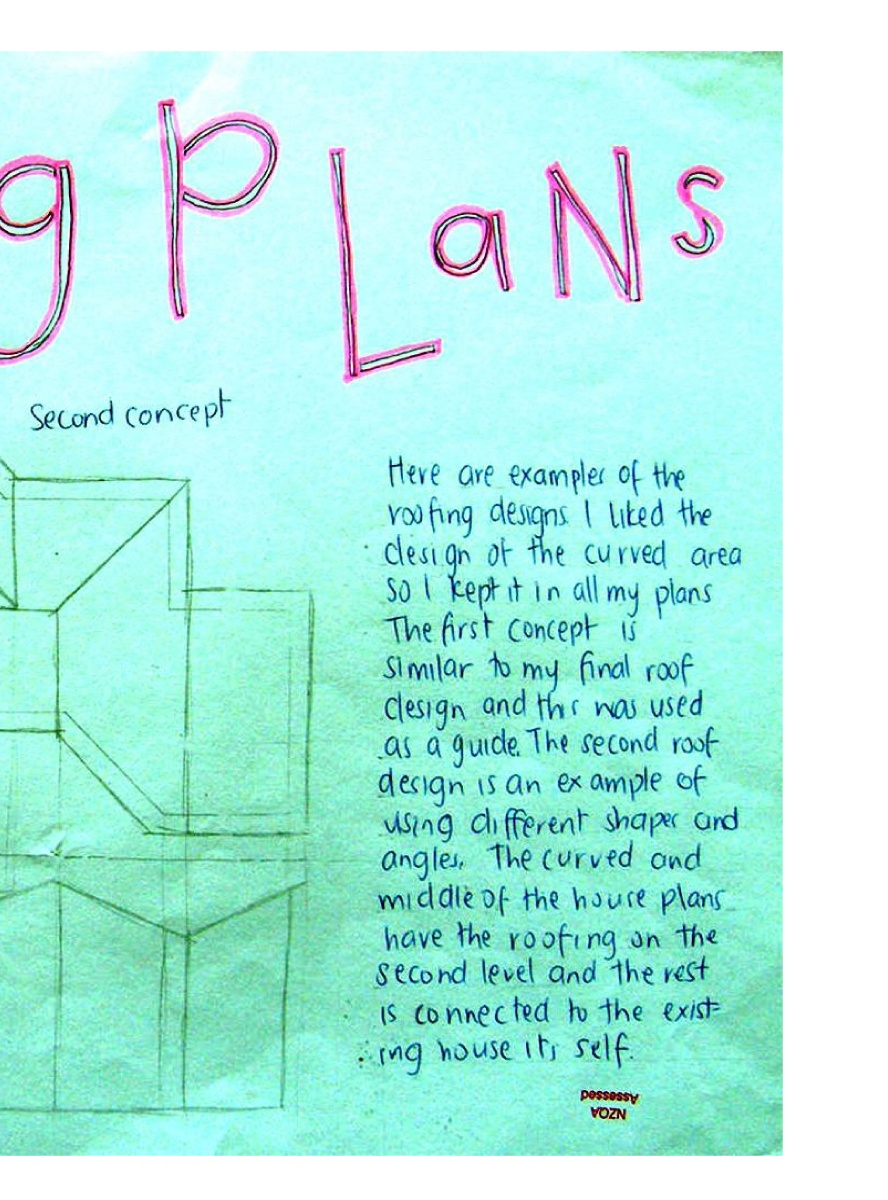 g PLaNs
Second concept
Here are examples of the
roofing designs. I liked the
design of the curved area
so I kept it in all my plans
The first concept is
similar to my final roof
design and this was used
as a guide. The second roof
design is an example of
using different shapes and
angles. The curved and
middle of the house plans
have the roofing on the
second level and the rest
is connected to the exist=
ing house its self.
NZQA
Assessed